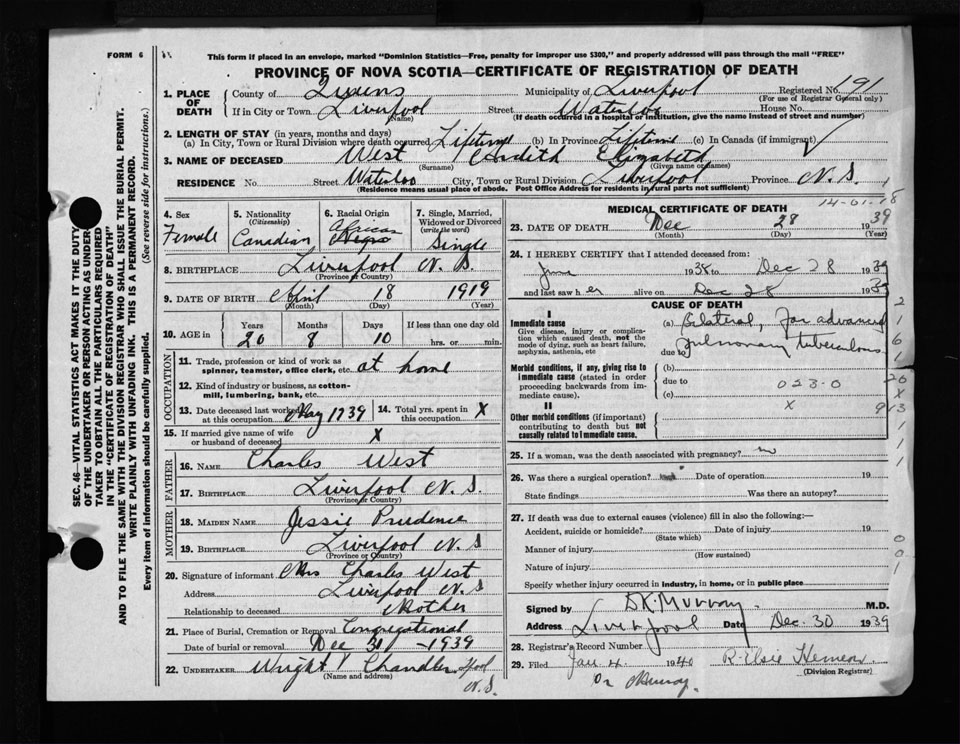 FORM 6
This form if placed in an envelope, marked "Dominion Statistics—Free, penalty for improper use $300," and properly addressed will pass through the mail "FREE"
PROVINCE OF NOVA SCOTIA—CERTIFICATE OF REGISTRATION OF DEATH
1. PLACE OF DEATH County of Queens Municipality of Liverpool Registered No. 191
(For use of Registrar General only)
If in City or Town Liverpool Street Waterloo House No.
(Name) (If death occurred in a hospital or institution, give the name instead of street and number)
2. LENGTH OF STAY (in years, months and days)
(a) In City, Town or Rural Division where death occurred Lifetime (b) In Province Lifetime (c) In Canada (if immigrant)
3. NAME OF DECEASED West Elizabeth
(Surname) (Given name or names)
RESIDENCE No. Street Waterloo City, Town or Rural Division Liverpool Province N.S.
(Residence means usual place of abode. Post Office Address for residents in rural parts not sufficient)
4. Sex Female
5. Nationality (Citizenship) Canadian
6. Racial Origin African Negro
7. Single, Married, Widowed or Divorced (write the word) Single
8. BIRTHPLACE Liverpool N.S.
(Province or Country)
9. DATE OF BIRTH April 18 1919
(Month) (Day) (Year)
10. AGE in Years Months Days If less than one day old
20 8 10 hrs. or min.
OCCUPATION
11. Trade, profession or kind of work as spinner, teamster, office clerk, etc. at home
12. Kind of industry or business, as cotton-mill, lumbering, bank, etc.
13. Date deceased last worked at this occupation May 1939 14. Total yrs. spent in this occupation X
15. If married give name of wife or husband of deceased X
FATHER
16. NAME Charles West
17. BIRTHPLACE Liverpool N.S.
(Province or Country)
MOTHER
18. MAIDEN NAME Jessie Prudence
19. BIRTHPLACE Liverpool N.S
(Province or Country)
20. Signature of informant Mrs Charles West
Address Liverpool N.S
Relationship to deceased Mother
21. Place of Burial, Cremation or Removal Congregational
Date of burial or removal Dec 31 - 1939
22. UNDERTAKER Wright Chandler
(Name and address)
N.S.
14-01-18
MEDICAL CERTIFICATE OF DEATH
23. DATE OF DEATH Dec 28 1939
(Month) (Day) (Year)
24. I HEREBY CERTIFY that I attended deceased from:
June 1938 to Dec 28 1939
and last saw h er alive on Dec 28 1939
CAUSE OF DEATH
I
Immediate cause
Give disease, injury or complication which caused death, not the mode of dying, such as heart failure, asphyxia, asthenia, etc
(a) Bilateral, far advanced
pulmonary tuberculosis
due to
Morbid conditions, if any, giving rise to immediate cause (stated in order proceeding backwards from immediate cause).
(b)
due to 023-0
(c)
II
X
Other morbid conditions (if important) contributing to death but not causally related to Immediate cause.
25. If a woman, was the death associated with pregnancy? no
26. Was there a surgical operation? Date of operation 19
State findings Was there an autopsy?
27. If death was due to external causes (violence) fill in also the following:—
Accident, suicide or homicide? Date of injury 19
(State which)
Manner of injury
(How sustained)
Nature of injury
Specify whether injury occurred in industry, in home, or in public place
Signed by D.K. Murray M.D.
Address Liverpool Date Dec. 30 1939
28. Registrar's Record Number
29. Filed Jan 4. 1940 R. Elsie Hemeon
(Division Registrar)
SEC. 46—VITAL STATISTICS ACT MAKES IT THE DUTY
OF THE UNDERTAKER OR PERSON ACTING AS UNDERTAKER TO OBTAIN ALL THE PARTICULARS REQUIRED
IN THE "CERTIFICATE OF REGISTRATION OF DEATH"
AND TO FILE THE SAME WITH THE DIVISION REGISTRAR WHO SHALL ISSUE THE BURIAL PERMIT.
WRITE PLAINLY WITH UNFADING INK. THIS IS A PERMANENT RECORD.
Every item of information should be carefully supplied. (See reverse side for instructions.)